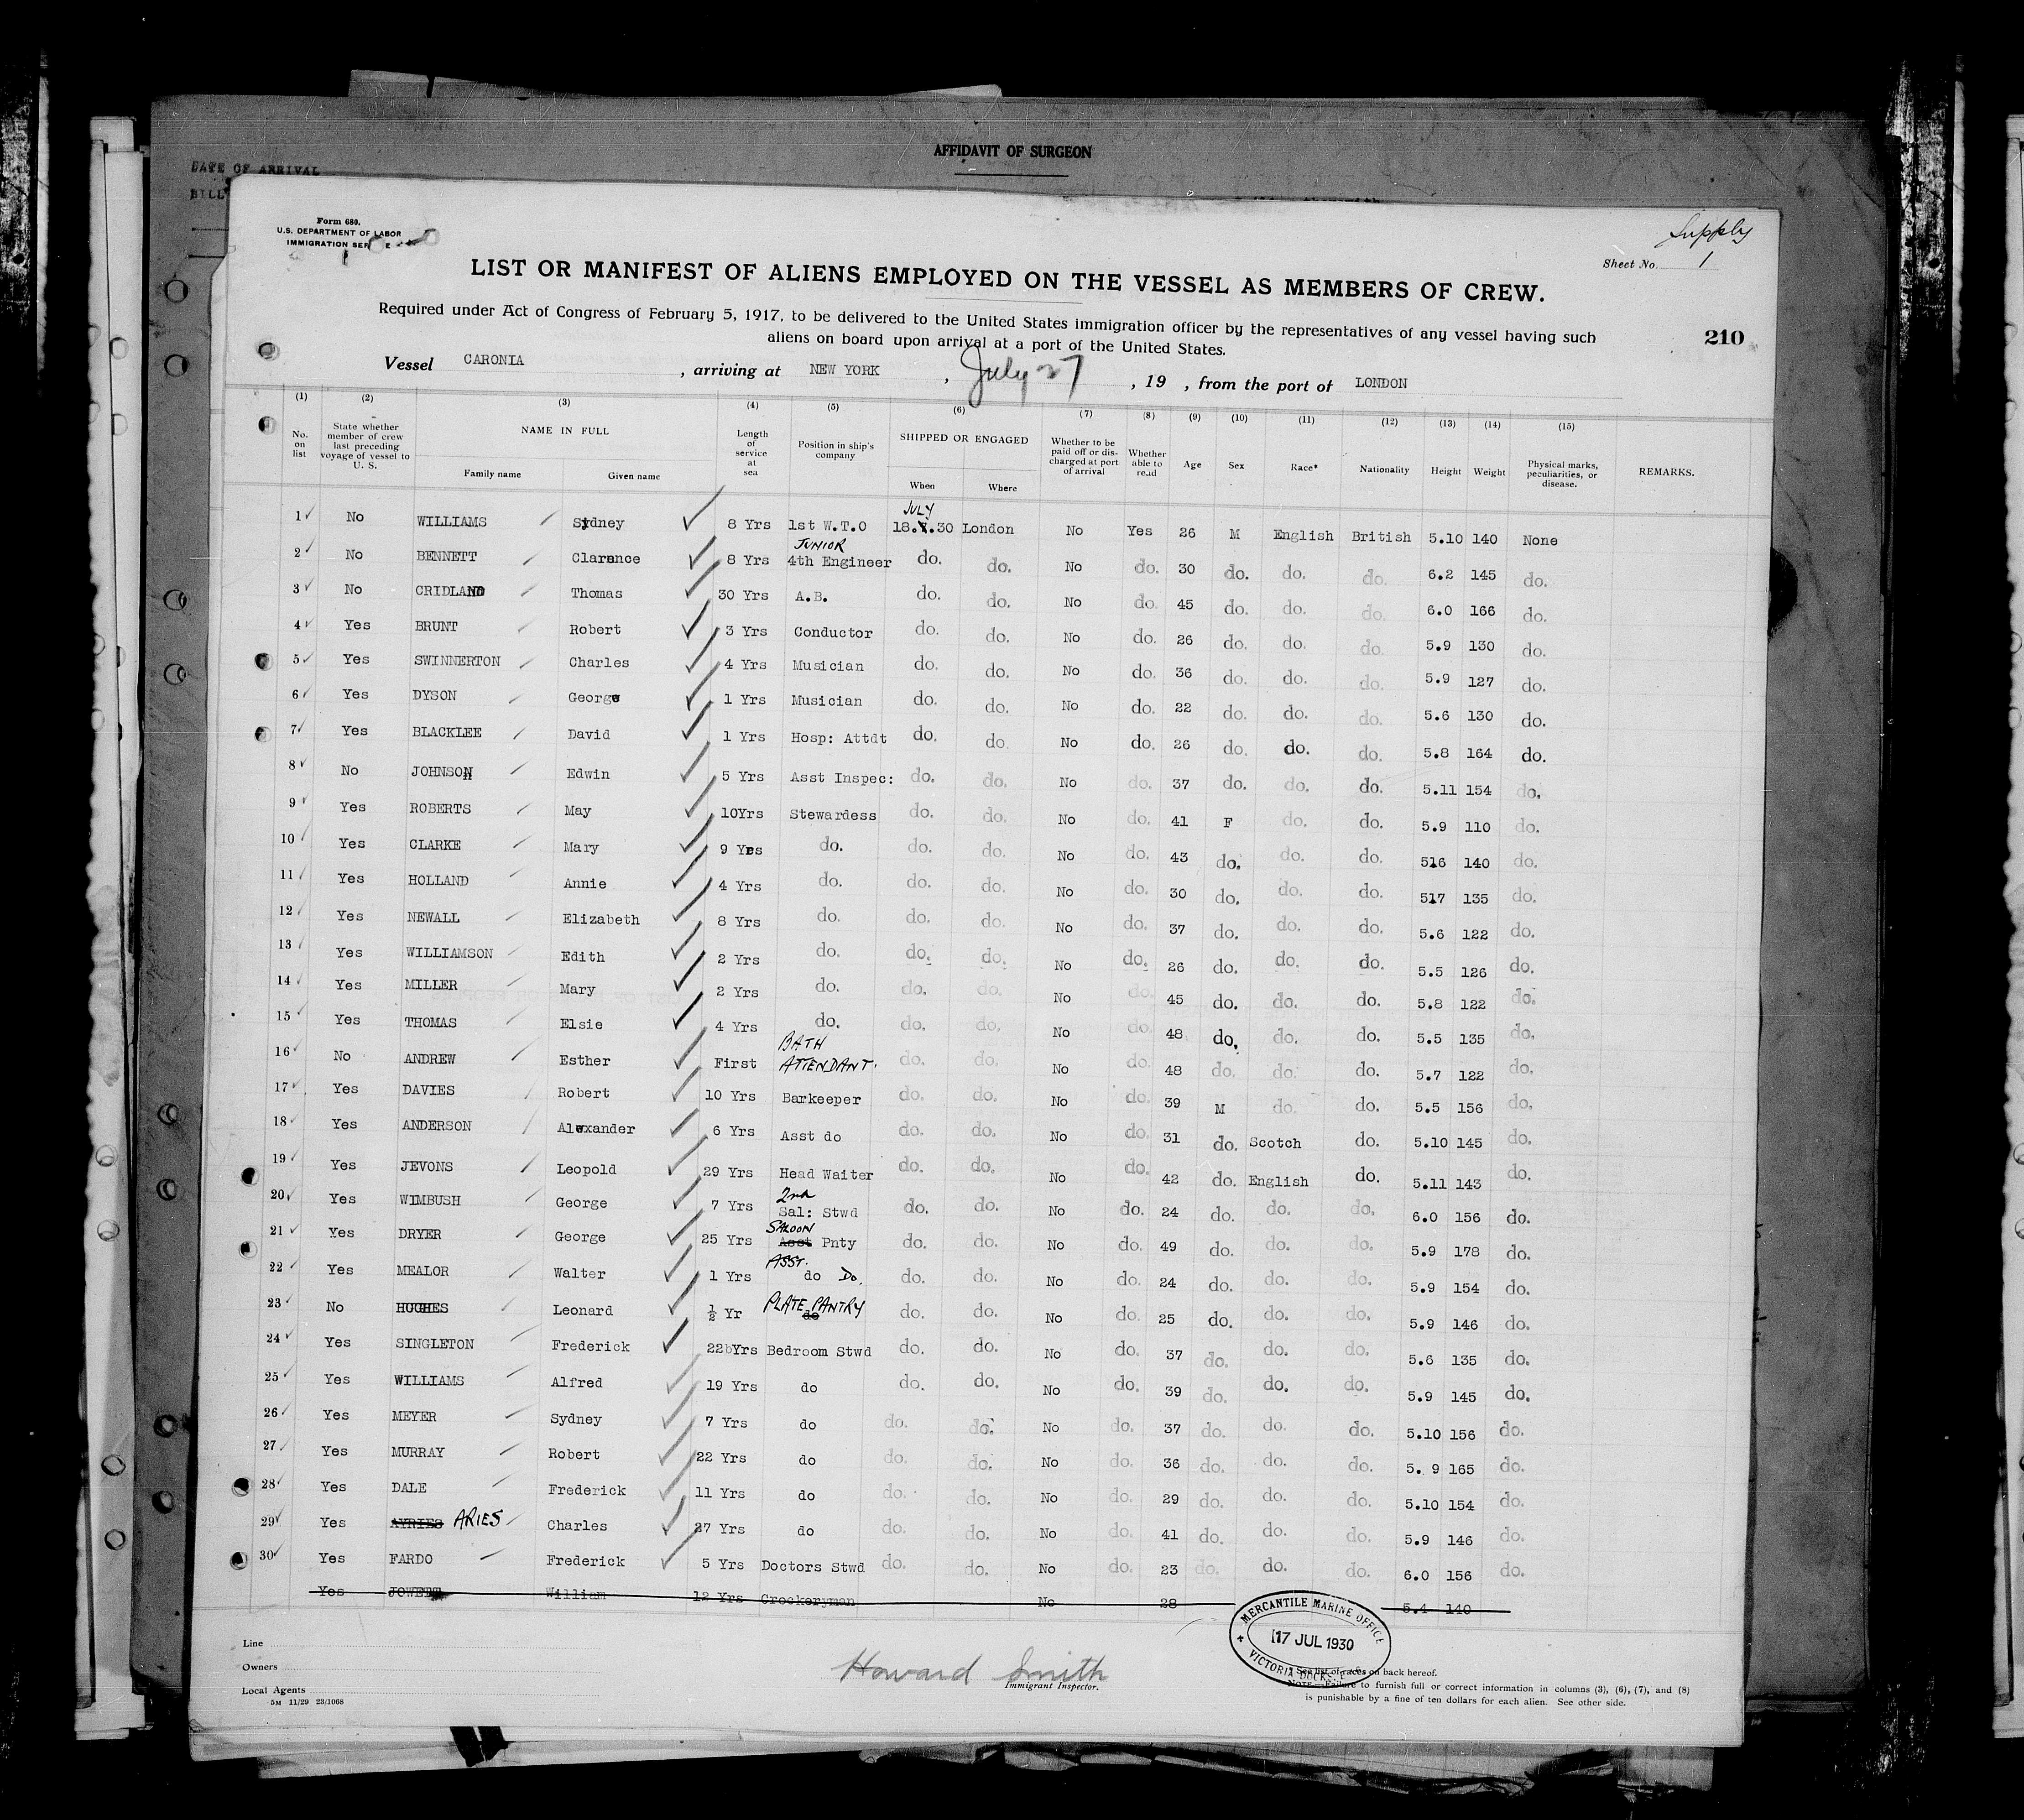 AFFIDAVIT OF SURGEON
DATE OF ARRIVAL
BILL
Form 680.
U.S. DEPARTMENT OF LABOR
IMMIGRATION
Supply
Sheet No. 1
LIST OR MANIFEST OF ALIENS EMPLOYED ON THE VESSEL AS MEMBERS OF CREW.
Required under Act of Congress of February 5, 1917, to be delivered to the United States immigration officer by the representatives of any vessel having such
aliens on board upon arrival at a port of the United States.
210
Vessel CARONIA, arriving at NEW YORK, July 27, 19 , from the port of LONDON
(1) (2) (3) (4) (5) (6) (7) (8) (9) (10) (11) (12) (13) (14) (15)
No. on list State whether member of crew last preceding voyage of vessel to U. S. NAME IN FULL Family name Given name Length of service at sea Position in ship's company SHIPPED OR ENGAGED When Where Whether to be paid off or discharged at port of arrival Whether able to read Age Sex Race* Nationality Height Weight Physical marks, peculiarities, or disease. REMARKS.
1 No WILLIAMS Sydney 8 Yrs 1st W.T.O 18.7.30 JULY London No Yes 26 M English British 5.10 140 None
2 No BENNETT Clarence 8 Yrs JUNIOR 4th Engineer do. do. No do. 30 do. do. do. 6.2 145 do.
3 No CRIDLAND Thomas 30 Yrs A.B. do. do. No do. 45 do. do. do. 6.0 166 do.
4 Yes BRUNT Robert 3 Yrs Conductor do. do. No do. 26 do. do. do. 5.9 130 do.
5 Yes SWINNERTON Charles 4 Yrs Musician do. do. No do. 36 do. do. do. 5.9 127 do.
6 Yes DYSON George 1 Yrs Musician do. do. No do. 22 do. do. do. 5.6 130 do.
7 Yes BLACKLEE David 1 Yrs Hosp: Attdt do. do. No do. 26 do. do. do. 5.8 164 do.
8 No JOHNSON Edwin 5 Yrs Asst Inspec: do. do. No do. 37 do. do. do. 5.11 154 do.
9 Yes ROBERTS May 10Yrs Stewardess do. do. No do. 41 F do. do. 5.9 110 do.
10 Yes CLARKE Mary 9 Yrs do. do. do. No do. 43 do. do. do. 516 140 do.
11 Yes HOLLAND Annie 4 Yrs do. do. do. No do. 30 do. do. do. 517 135 do.
12 Yes NEWALL Elizabeth 8 Yrs do. do. do. No do. 37 do. do. do. 5.6 122 do.
13 Yes WILLIAMSON Edith 2 Yrs do. do. do. No do. 26 do. do. do. 5.5 126 do.
14 Yes MILLER Mary 2 Yrs do. do. do. No do. 45 do. do. do. 5.8 122 do.
15 Yes THOMAS Elsie 4 Yrs do. do. do. No do. 48 do. do. do. 5.5 135 do.
16 No ANDREW Esther First BATH ATTENDANT. do. do. No do. 48 do. do. do. 5.7 122 do.
17 Yes DAVIES Robert 10 Yrs Barkeeper do. do. No do. 39 M do. do. 5.5 156 do.
18 Yes ANDERSON Alexander 6 Yrs Asst do do. do. No do. 31 do. Scotch do. 5.10 145 do.
19 Yes JEVONS Leopold 29 Yrs Head Waiter do. do. No do. 42 do. English do. 5.11 143 do.
20 Yes WIMBUSH George 7 Yrs 2nd Sal: Stwd do. do. No do. 24 do. do. do. 6.0 156 do.
21 Yes DRYER George 25 Yrs SALOON Asst Pnty do. do. No do. 49 do. do. do. 5.9 178 do.
22 Yes MEALOR Walter 1 Yrs ASST. do Do. do. do. No do. 24 do. do. do. 5.9 154 do.
23 No HUGHES Leonard ½ Yr PLATE PANTRY do do. do. No do. 25 do. do. do. 5.9 146 do.
24 Yes SINGLETON Frederick 22 Yrs Bedroom Stwd do. do. No do. 37 do. do. do. 5.6 135 do.
25 Yes WILLIAMS Alfred 19 Yrs do do. do. No do. 39 do. do. do. 5.9 145 do.
26 Yes MEYER Sydney 7 Yrs do do. do. No do. 37 do. do. do. 5.10 156 do.
27 Yes MURRAY Robert 22 Yrs do do. do. No do. 36 do. do. do. 5. 9 165 do.
28 Yes DALE Frederick 11 Yrs do do. do. No do. 29 do. do. do. 5.10 154 do.
29 Yes AYRIES ARIES Charles 27 Yrs do do. do. No do. 41 do. do. do. 5.9 146 do.
30 Yes FARDO Frederick 5 Yrs Doctors Stwd do. do. No do. 23 do. do. do. 6.0 156 do.
Yes JOWETT William 12 Yrs Crockeryman No 28 5.4 140
MERCANTILE MARINE OFFICE
17 JUL 1930
VICTORIA DOCKS
Line
Owners
Local Agents
5M 11/29 23/1068
Howard Smith
Immigrant Inspector.
* See list of races on back hereof.
NOTE.—Failure to furnish full or correct information in columns (3), (6), (7), and (8)
is punishable by a fine of ten dollars for each alien. See other side.